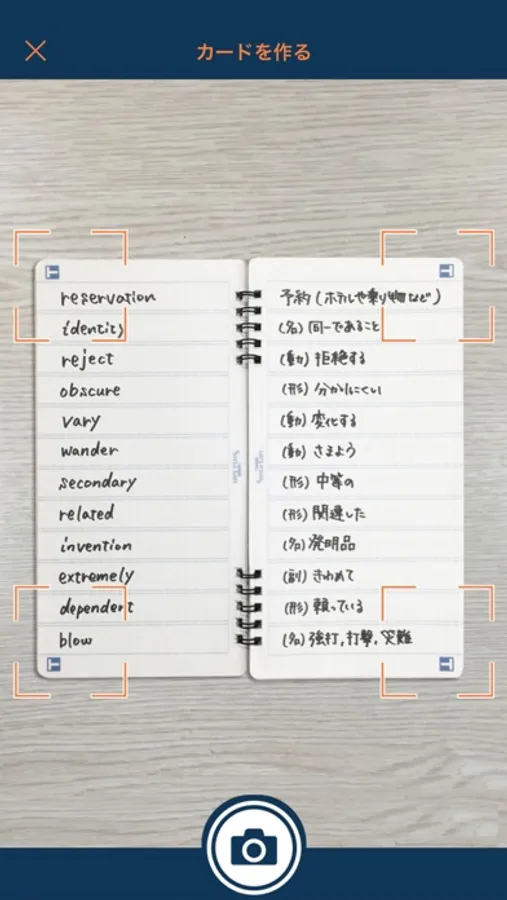 カードを作る
reservation 予約(ホテルや乗り物など)
identity (名) 同一であること
reject (動) 拒絶する
obscure (形) 分かりにくい
vary (動) 変化する
wander (動) さまよう
secondary (形) 中等の
related (形) 関連した
invention (名) 発明品
extremely (副) きわめて
dependent (形) 頼っている
blow (名) 強打,打撃,災難